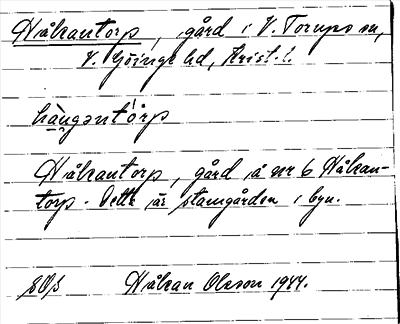 Håkantorp, gård i V. Torups sn,
V. Göinge hd, Krist. l.
hàŋgəntǻrp
Håkantorp, gård å nr 6 Håkan-
torp. Detta är stamgården i byn.
Håkan Olsson 1944.